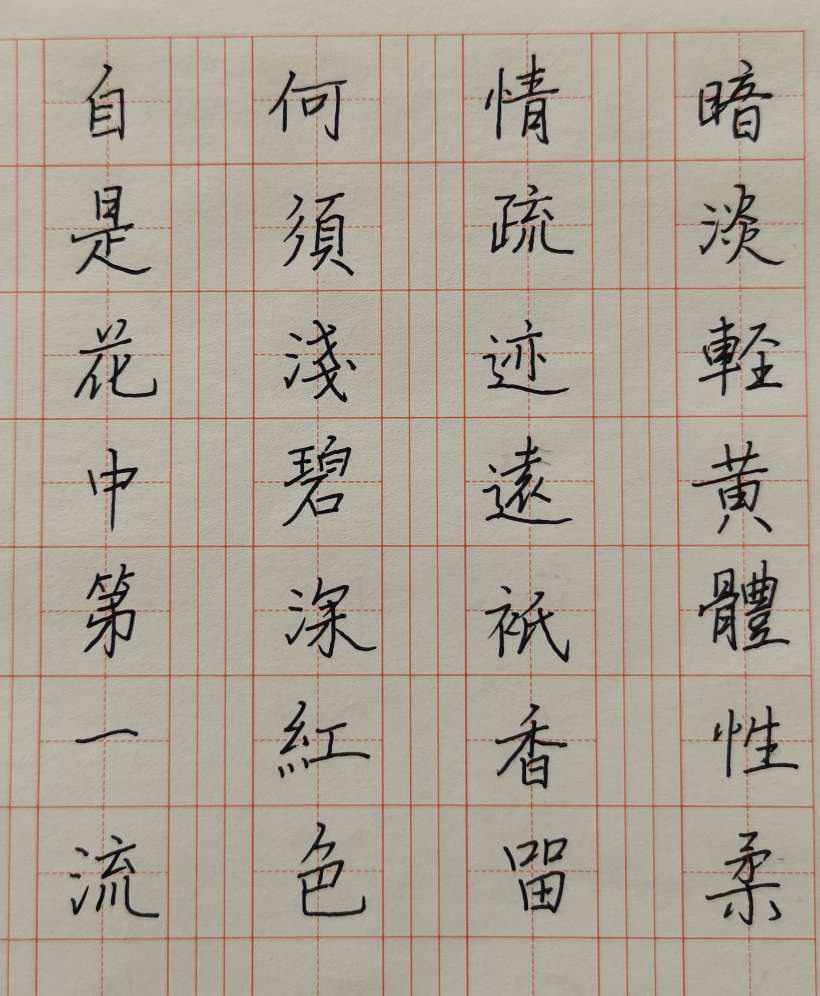 暗淡輕黃體性柔
情疏迹遠祇香留
何須淺碧深紅色
自是花中第一流